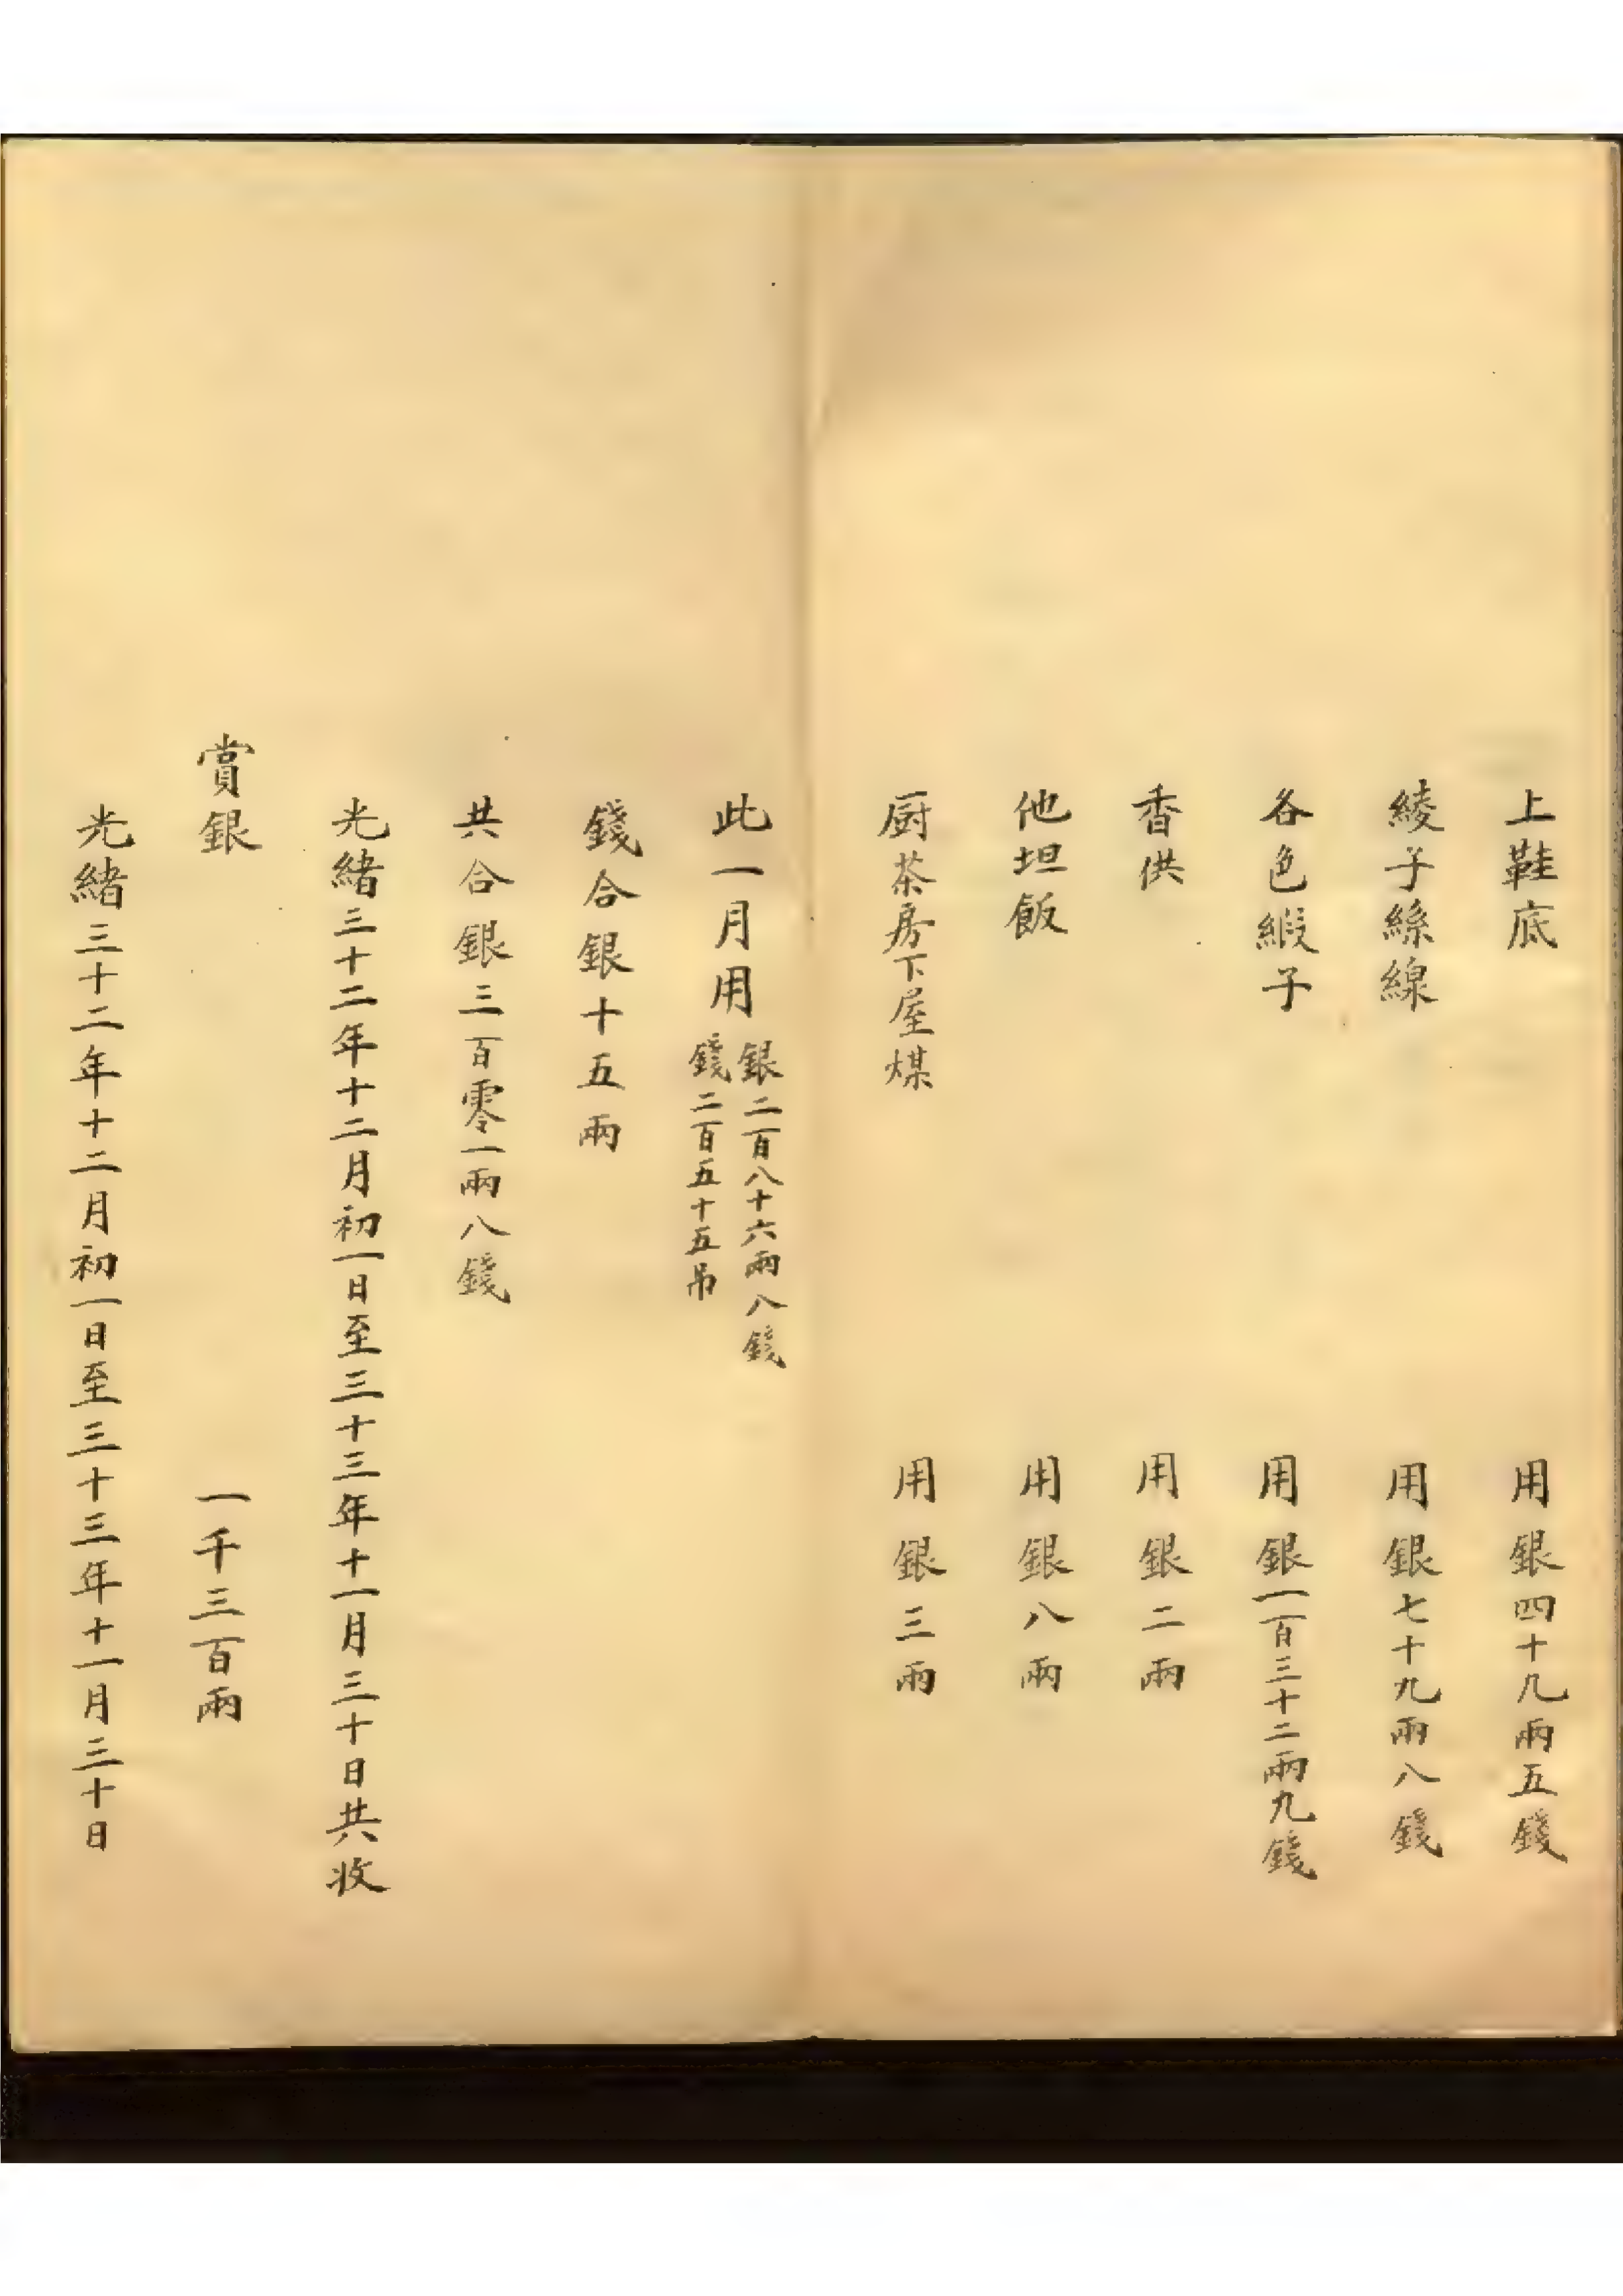 上鞋底 用銀四十九兩五錢
綾子絲線 用銀七十九兩八錢
各色緞子 用銀一百三十二兩九錢
香供 用銀二兩
他坦飯 用銀八兩
厨茶房下屋煤 用銀三兩
此一月用 銀二百八十六兩八錢
錢二百五十五吊
錢合銀十五兩
共合銀三百零一兩八錢
光緒三十二年十二月初一日至三十三年十一月三十日共收
賞銀 一千三百兩
光緒三十二年十二月初一日至三十三年十一月三十日